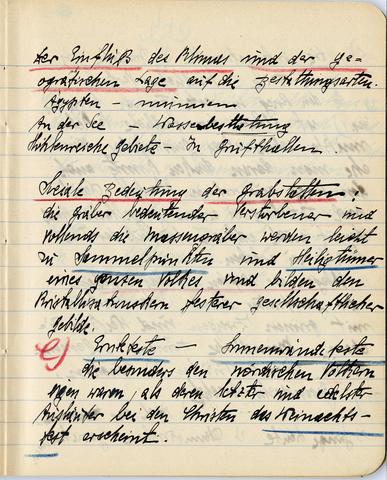 Der Einfluß des Klimas und der ge-
ografischen Lage auf die Bestattungsarten.
Ägypten - mumien
An der See - Wasserbestattung
Höhlenreiche Gebiete - in Grufthallen.
Soziale Bedeutung der Grabstätten:
die gräber bedeutender Verstorbener und
vollends die Massengräber werden leicht
zu Sammelpunkten und Heiligtümer
eines ganzen Volkes und bilden den
fester gesellschaftlicher
gebilde.
e) Erntefeste - Sonnenwendfeste
die besonders den nordischen Völkern
eigen waren, als deren letzter und edelster
Ausläufer bei den Christen das Weinachts-
fest erscheint.